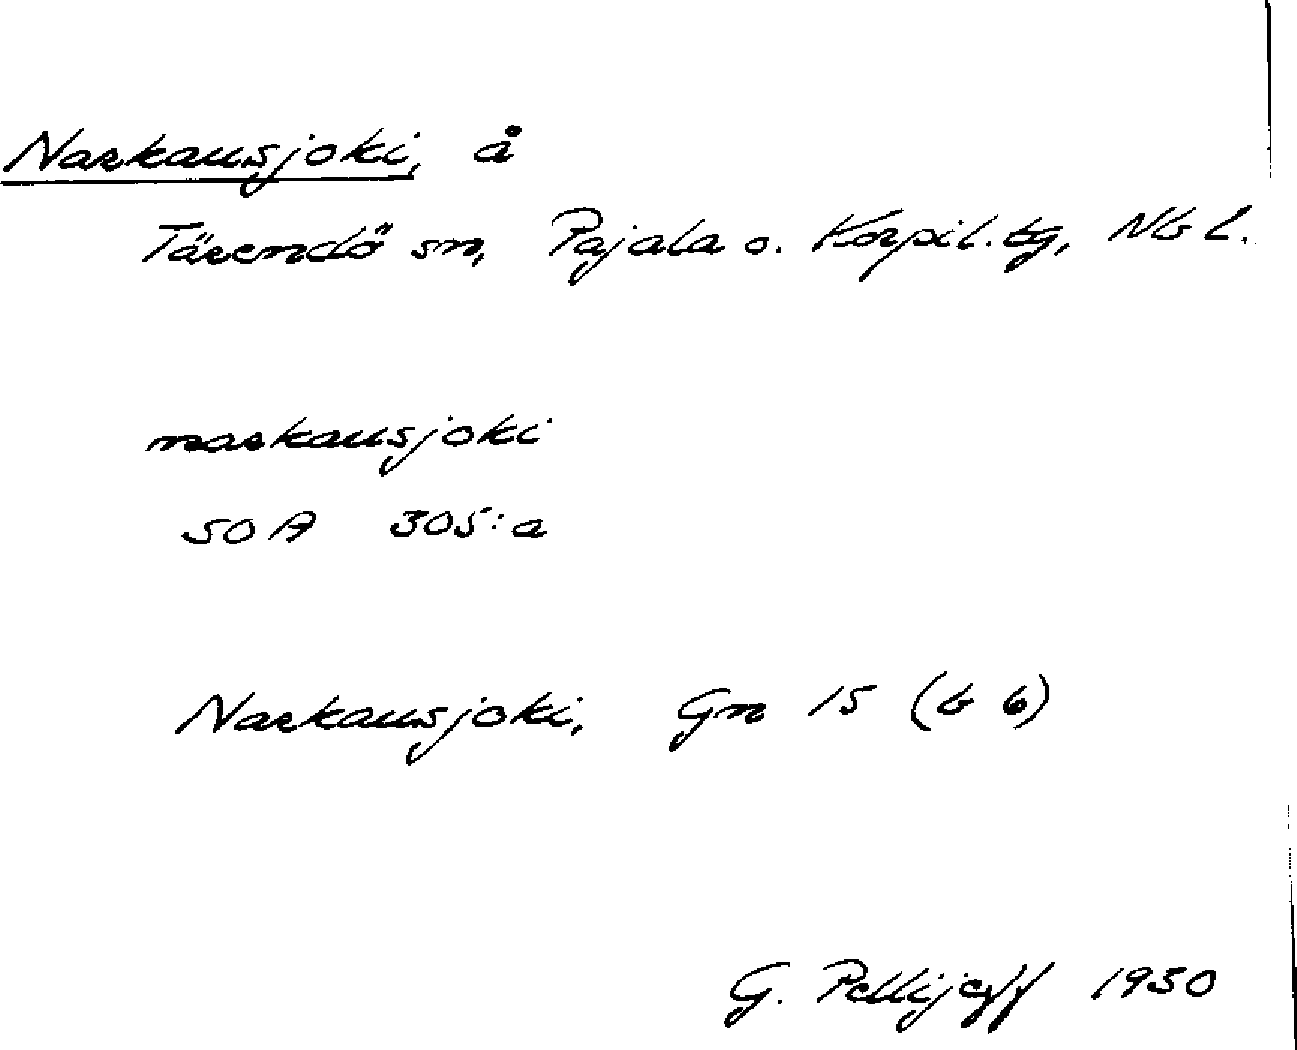 Narkausjoki, å
Tärendö sn, Pajala o. Korpil. tg, Nb l.
narkausjoki
50 A 305:a
Narkausjoki, Gn 15 (b 6)
G. Pellijeff 1950